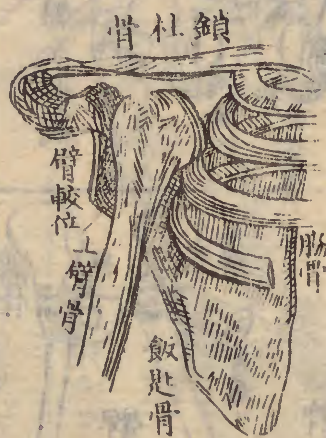 鎖柱骨
臂骹位
上臂骨
飯匙骨
肋骨